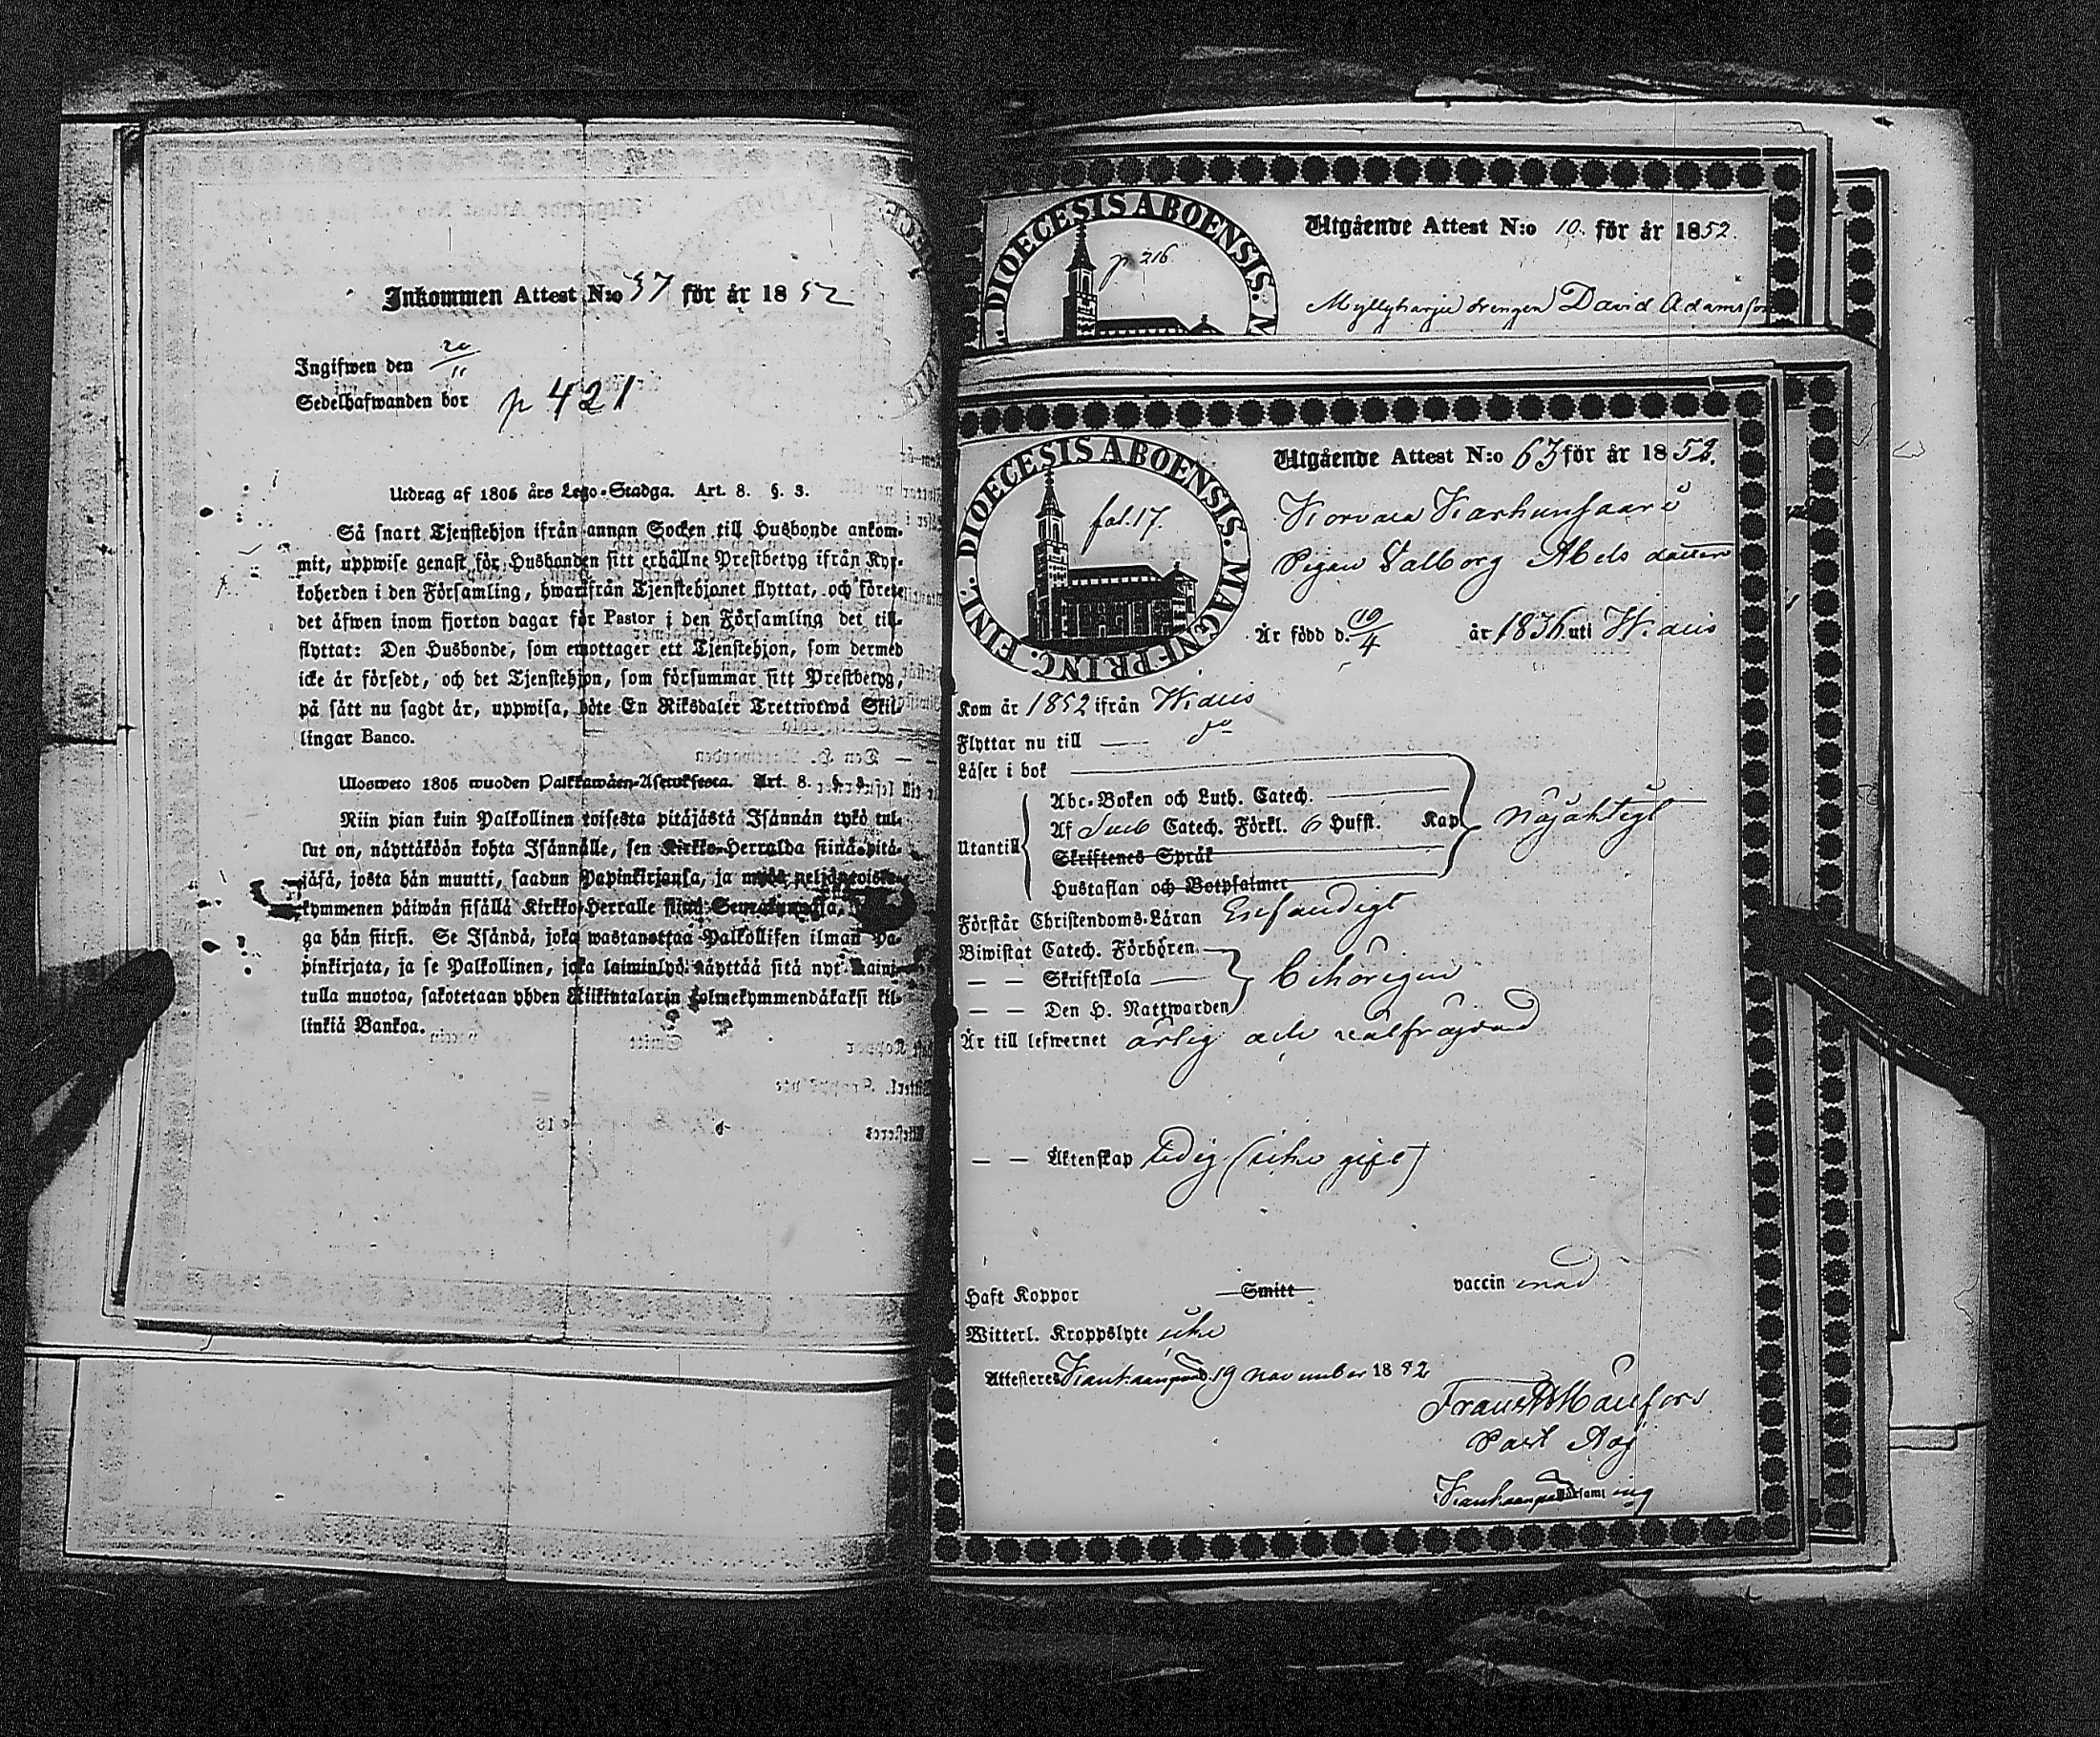 Inkommen Attest N:o 37 för år 1852
Ingifwen den 20/11
Sedelhafwanden bor p 421
Utdrag af 1805 års Lego-Stadga. Art. 8. §. 3.
Så snart Tjenstehjon ifrån annan Socken till Husbonde ankom-
mit, uppwise genast för Husbonden sitt erhållne Prestbetyg ifrån Kyr-
koherden i den Församling, hwarifrån Tjenstehjonet flyttat, och förete
det äfwen inom fjorton dagar för Pastor i den Församling det till-
flyttat: Den Husbonde, som emottager ett Tjenstehjon, som dermed
icke är försedt, och det Tjenstehjon, som försummar sitt Prestbetyg,
på sätt nu sagdt är, uppwisa, böte En Riksdaler Trettiotwå Skil-
lingar Banco.
Uloswето 1805 wuoden Palkkawäen-Asetuksesta. Art. 8. §. 3.
Niin pian kuin Palkollinen toisesta pitäjästä Isännän tykö tul-
lut on, näyttäköön kohta Isännälle, sen Kirkko-Herralda siinä pitä-
jäsä, josta hän muutti, saadun Papinkirjansa, ja myös neljäntoista-
kymmenen päiwän sisällä Kirkko-Herralle siinä Seurakunnasa,
ga hän siirsi. Se Isändä, joka wastanottaa Palkollisen ilman Pa-
pinkirjata, ja se Palkollinen, joka laiminlyö näyttää sitä nyt maini-
tulla muotoa, sakotetaan yhden Riikintalarin kolmekymmendäkaksi kil-
linkiä Bankoa.
DIOECESIS ABOENSIS. M
p. 216
Utgående Attest N:o 10. för år 1852.
Myllyharju drengen David Adamsson
DIOECESIS ABOENSIS. MAGNI PRINC. FINL.
fol. 17.
Utgående Attest N:o 63 för år 1852.
Korvala Karhunsaari
Pigan Valborg Abels dotter
Är född d. 10/4 år 1836 uti
Kom år 1852 ifrån
Flyttar nu till — do
Läser i bok
Utantill
Abc-Boken och Luth. Catech.
Af Sueb Catech. Förkl. 6 Hufst. Kap
nöjaktigt
Skriftenes Språk
Hustaflan och Botpsalmer
Förstår Christendoms-Läran Enfaudigt
Biwistat Catech. Förhören
— — Skriftskola — behörigen
— — Den H. Nattwarden
Är till lefwernet ärlig och välfräjdad
— — Äktenskap ledig (icke gift)
Haft Koppor Smitt vaccin erad
Witterl. Kroppslyte icke
Attesteres Kankaanpää 19 november 1852
Past Adj
Kankaanpää Församling